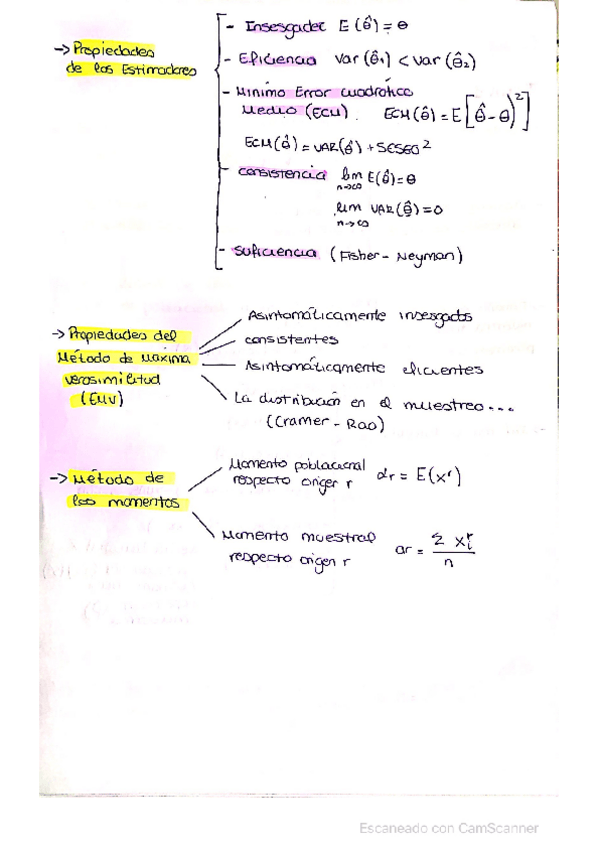 → Propiedades
de los Estimadores
- Insesgadez E(θ̂) = θ
- Eficiencia Var(θ̂₁) < Var(θ̂₂)
- Mínimo Error Cuadrático
Medio (ECM). ECM(θ̂) = E[θ̂ - θ)²]
ECM(θ̂) = VAR(θ̂) + SESGO²
- Consistencia lim E(θ̂) = θ
n→∞
lim VAR(θ̂) = 0
n→∞
- Suficiencia (Fisher - Neyman)
→ Propiedades del
Método de Máxima
verosimilitud
(EMV)
Asintomáticamente insesgados
consistentes
Asintomáticamente eficientes
La distribución en el muestreo...
(Cramer - Rao)
→ Método de
los momentos
Momento poblacional
respecto origen r αr = E(xʳ)
Momento muestral
respecto origen r ar = Σ xᵢʳ / n
Escaneado con CamScanner